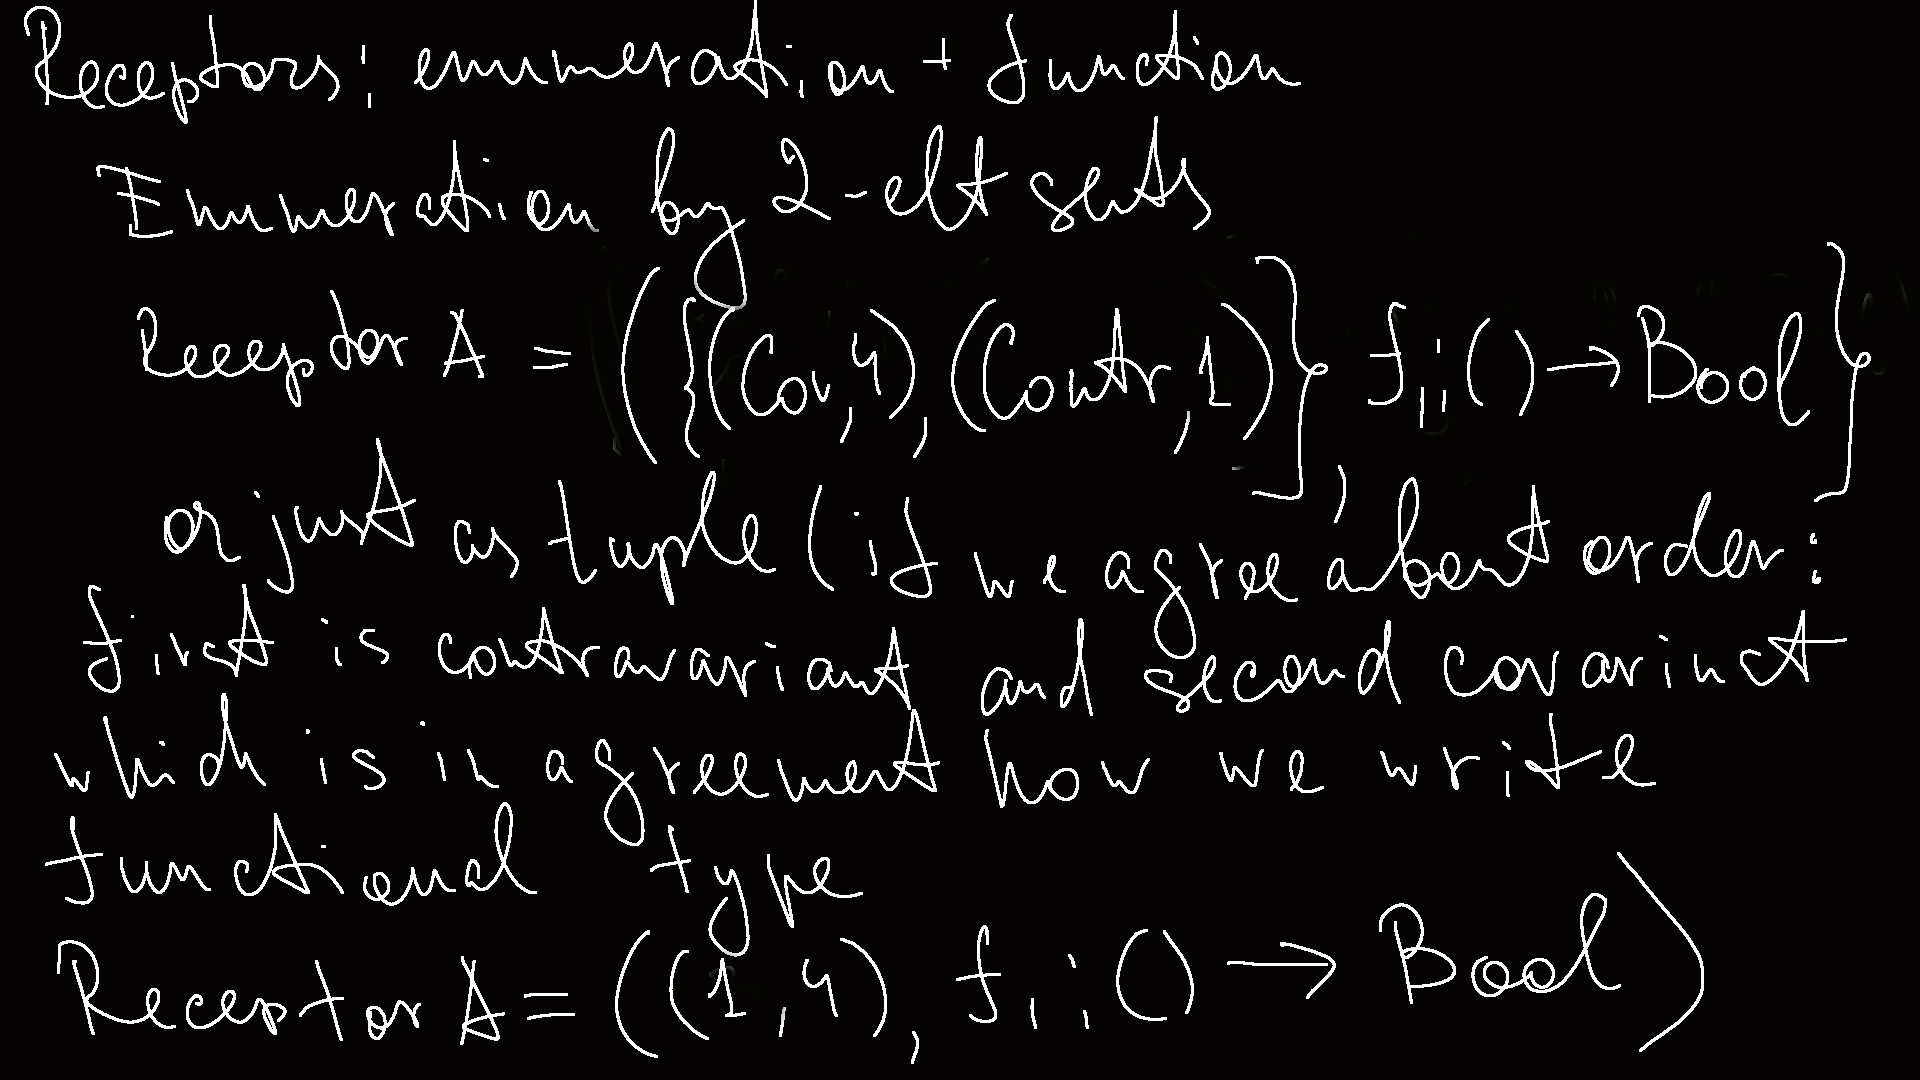 Receptors: enumeration + function
Enumeration by 2-elt sets
Receptor A = ({(Cov,4),(Contr,1)}, f_ij() → Bool}
or just as tuple (if we agree about order:
first is contravariant and second covarinat
which is in agreement how we write
functional type
Receptor A = ((1,4), f_ij() → Bool)